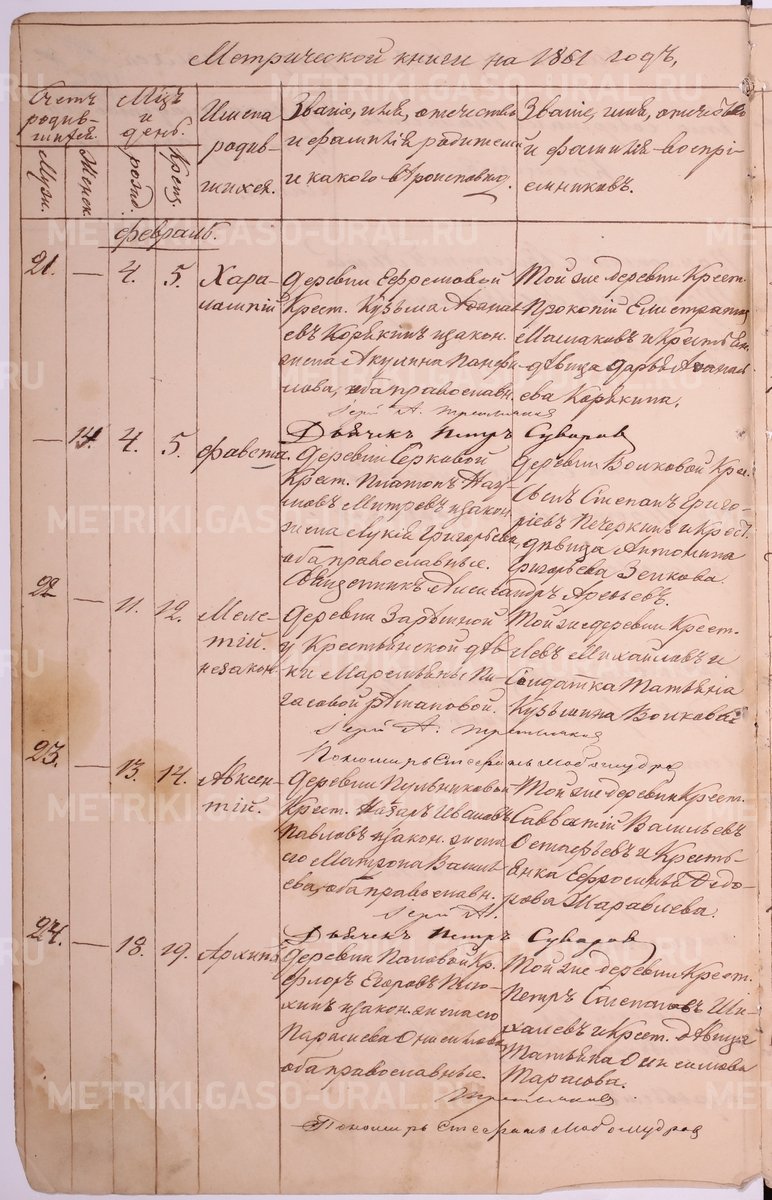 Метрической книги на 1861 годъ,
Счетъ родив-шихся.
Муж.
Женск.
Мѣсъ и день.
рожд.
Крещ.
Имена родив-шихся.
Званіе, имя, отечество
и фамилія родителей
и какого вѣроисповѣд.
Званіе, имя, отечество
и фамилія воспрі-
емниковъ.
Февраль.
21. — 4. 5. Хара-
лампій
Деревни Ефремовой
Крест. Кузьма Афанась-
евъ Корякинъ и закон.
жена Акулина Панфи-
лова, оба православн.
Той же деревни Крест.
Прокопій Елистратов
и Крест.
дѣвица Дарья Афанась-
ева Корякина.
Дьячекъ Петръ Суворов
— 14. 4. 5. Фавста.
Деревни Серковой
Крест. Платонъ Нау-
мовъ Митревъ и закон.
жена Григорьева,
оба православные.
Деревни Волковой Крес.
Сынъ Степан Григо-
ріевъ Печеркинъ и Крест.
дѣвица Антонина
Григорьева Зенкова.
Священникъ Александръ Арефьевъ.
22 — 11. 12. Меле-
тій.
незакон.
Деревни
у Крестьянской дѣв-
ки
Той же деревни Крест.
Левъ Михайловъ и
Солдатка Татьяна
Кузьмина Волкова.
Пономарь Стефанъ Любомудров
23. — 13. 14. Авксен-
тій.
Деревни Пульниковой
Крест. Назаръ Ивановъ
Павловъ и закон. жена
его Матрона Василь-
ева, оба православн.
Той же деревни Крест.
Савватій Васильевъ
и Кресть-
янка Ефросинья Ѳедо-
рова
Дьячекъ Петръ Суворов
24. — 18. 19. Архипъ
Деревни Кр.
Флоръ Егоровъ
и закон. жена его
Онисимова
оба православные.
Той же деревни Крест.
Петръ Степановъ Ши-
халевъ и Крест. дѣвица
Татьяна Онисимова
Тарасова.
Пономарь Стефанъ Любомудров
METRIKI.GASO-URAL.RU